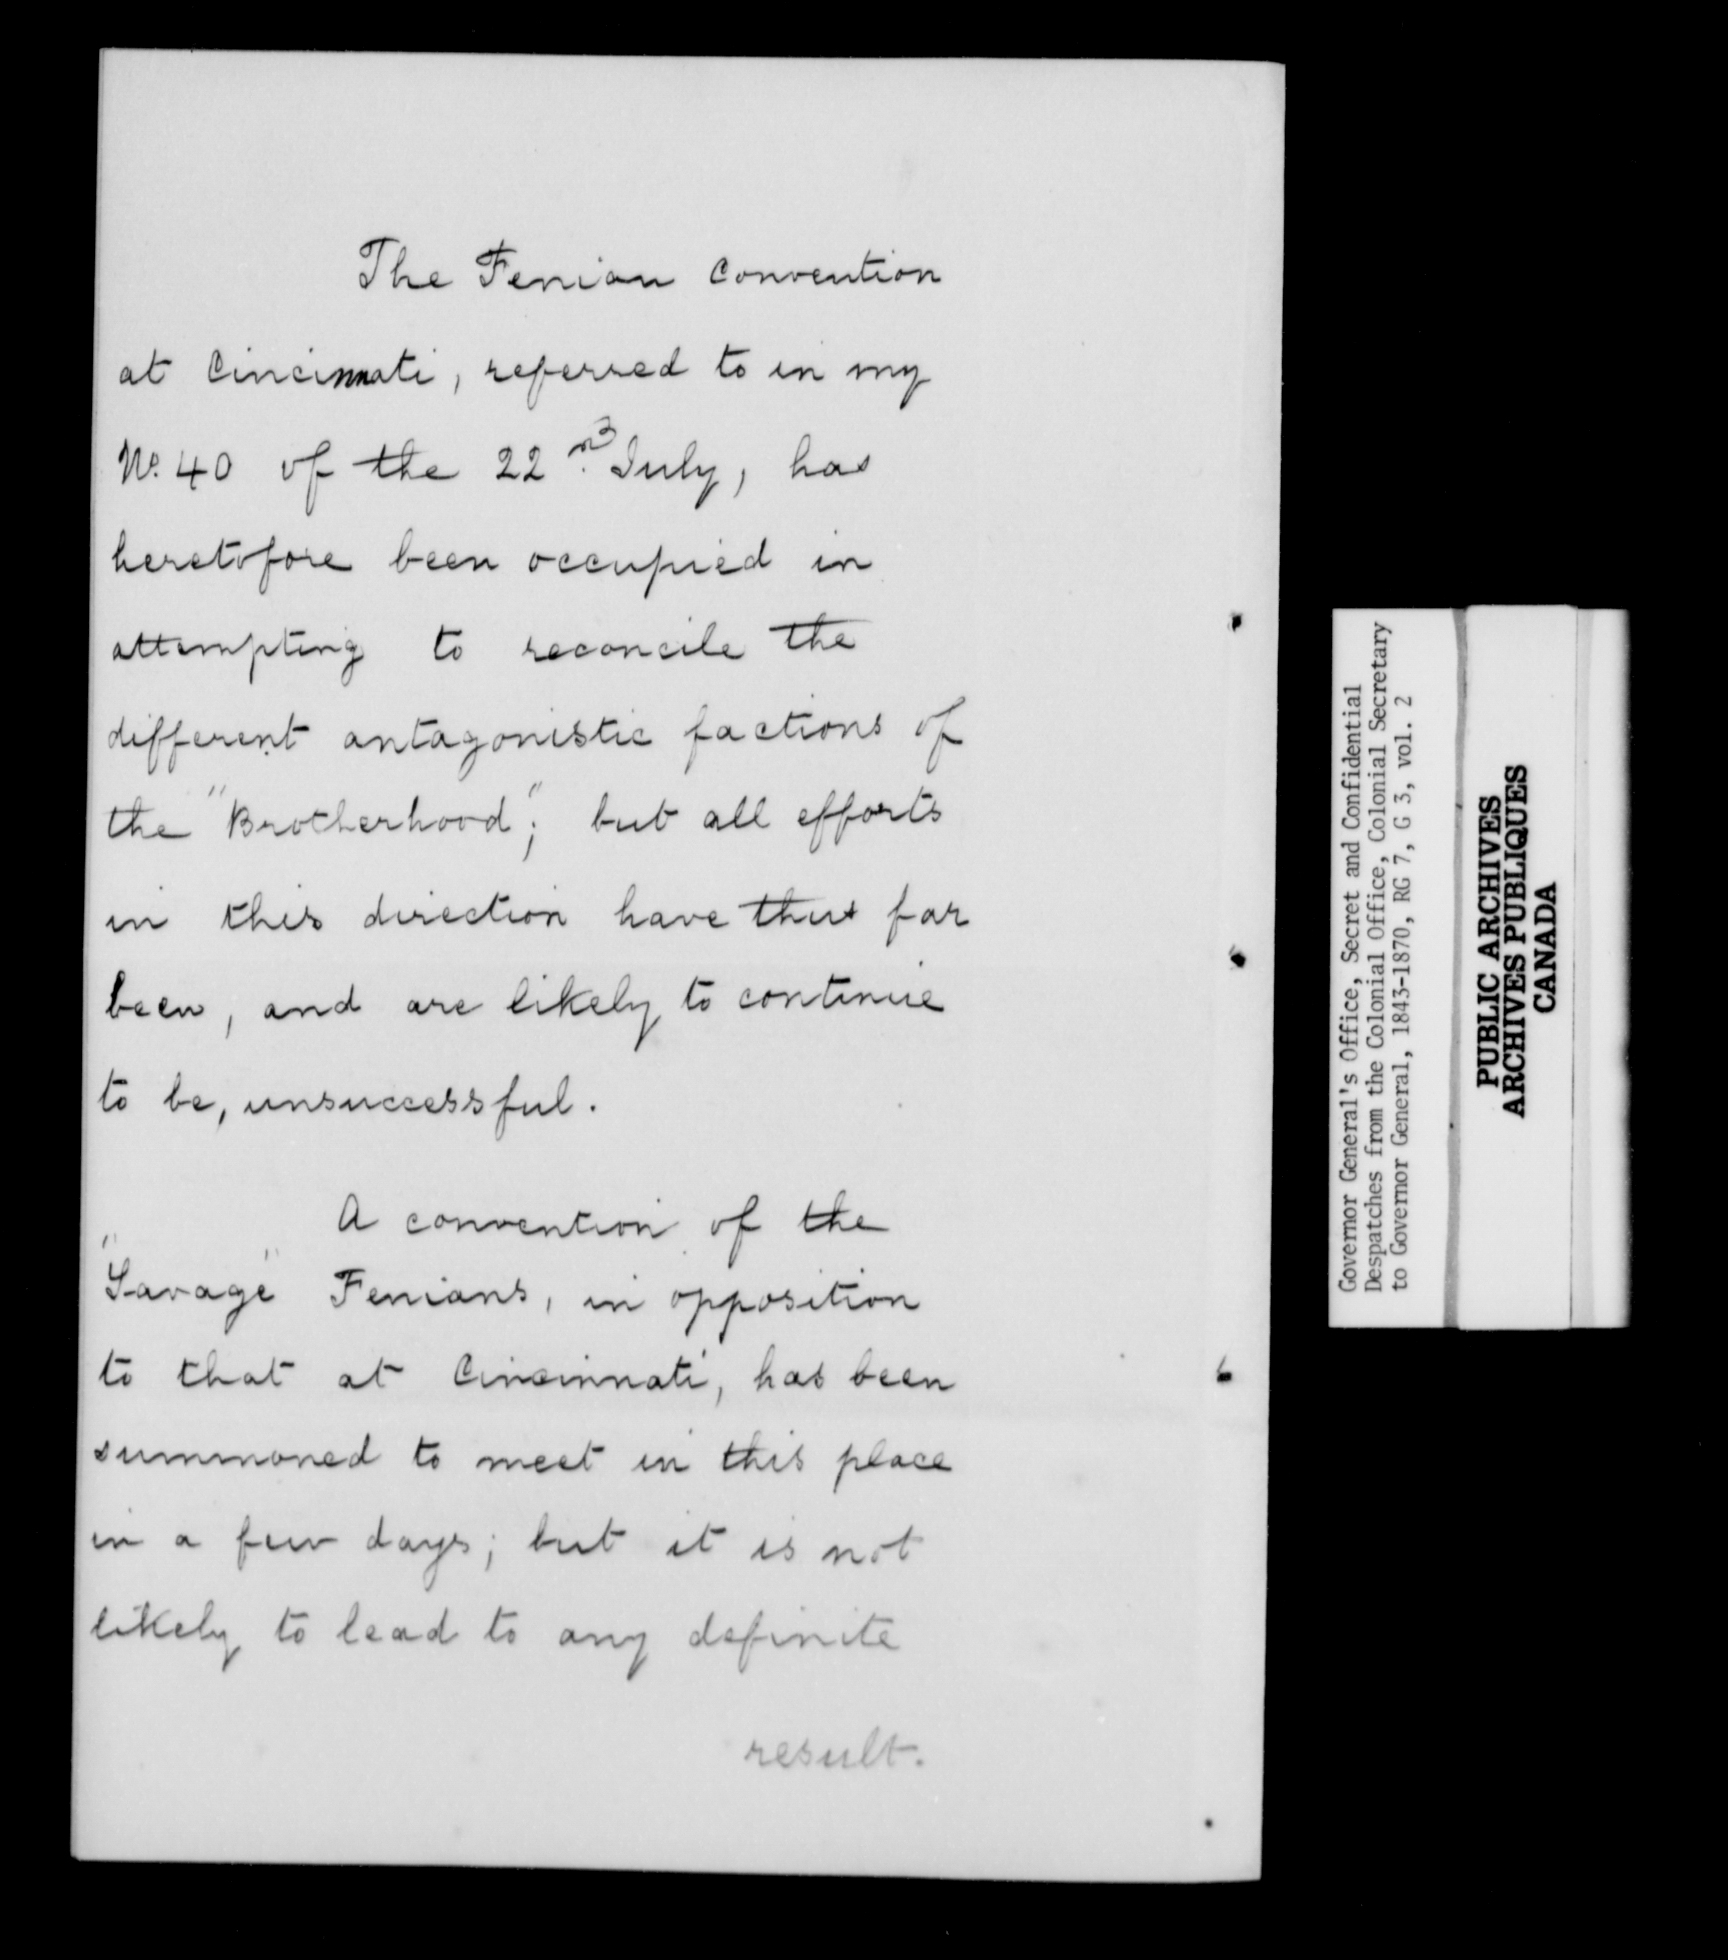 The Fenian Convention
at Cincinnati, referred to in my
No. 40 of the 22nd July, has
heretofore been occupied in
attempting to reconcile the
different antagonistic factions of
the "Brotherhood"; but all efforts
in this direction have thus far
been, and are likely to continue
to be, unsuccessful.
A convention of the
"Savage" Fenians, in opposition
to that at Cincinnati, has been
summoned to meet in this place
in a few days; but it is not
likely to lead to any definite
result.
Governor General's Office, Secret and Confidential
Despatches from the Colonial Office, Colonial Secretary
to Governor General, 1843-1870, RG 7, G 3, vol. 2
PUBLIC ARCHIVES
ARCHIVES PUBLIQUES
CANADA